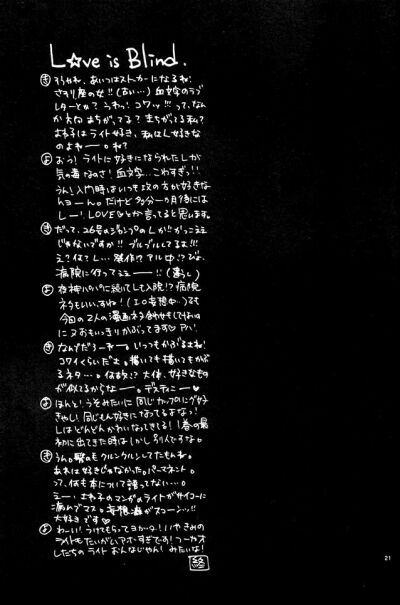 L☆ve is Blind.
き そうやね、あいつはストーカーになるね!
さそり座の女!!(古い…)血文字のラブ
レターとか?うわっ!コワッ!!って、なんか
方向まちがってる?まちがってる私?
よね子はライト好き、私はL好きな
のよねー。ね?
よ おう!ライトに好きになられたLが
気の毒なのさ!血文字…こわすぎっ!!
うん!入門時はいつも攻の方が好きな
んヨーん。だけど多分一カ月後には
しー!LOVE♡とか言ってると思います。
き だって、26号のジャンプのLが!!かっこええ
じゃないですか!!プルプルしてるよ!!!
え?何?L…禁断!?アル中!?びょ、
病院に行ってェェー!!(暮らし)
よ 夜神パパに続いてLも入院!?病院
ネタもいいすね!(エロ妄想中…)でも
今回の2人の漫画ネタ合わせもしてないの
にヌおもいっきりかぶってます♡アハ!
き なんでだろーねー。いつもかぶるよね!
コワイくらいだよ。描いても描いてもかぶ
るネタ…。何故!?大体、好きなもの
が似てるからなー。デスティニー♡
よ ほんと!うそみたいに同じカップリング好
きやし!同じもん好きになってるすなっ!
Lはどんどんかわいなってきてる!1巻の最
初に出てきた時はしかし別人ですな。
き うん。髪の毛クルンクルンしてたもんネ。
あれは好きじゃなかった。パーマネント。
って、何も本について語ってない…。
えー、よね子のマンガのライトがサイコーに
痛んでマス。妄想癖がスコーンッ!!
大好きです♡
よ わーい!うけてもらってヨカッター!いやきみの
ライトもたいがいアホすぎです!つーかオ
レたちのライト おんなじやん!みたいな!
終
21